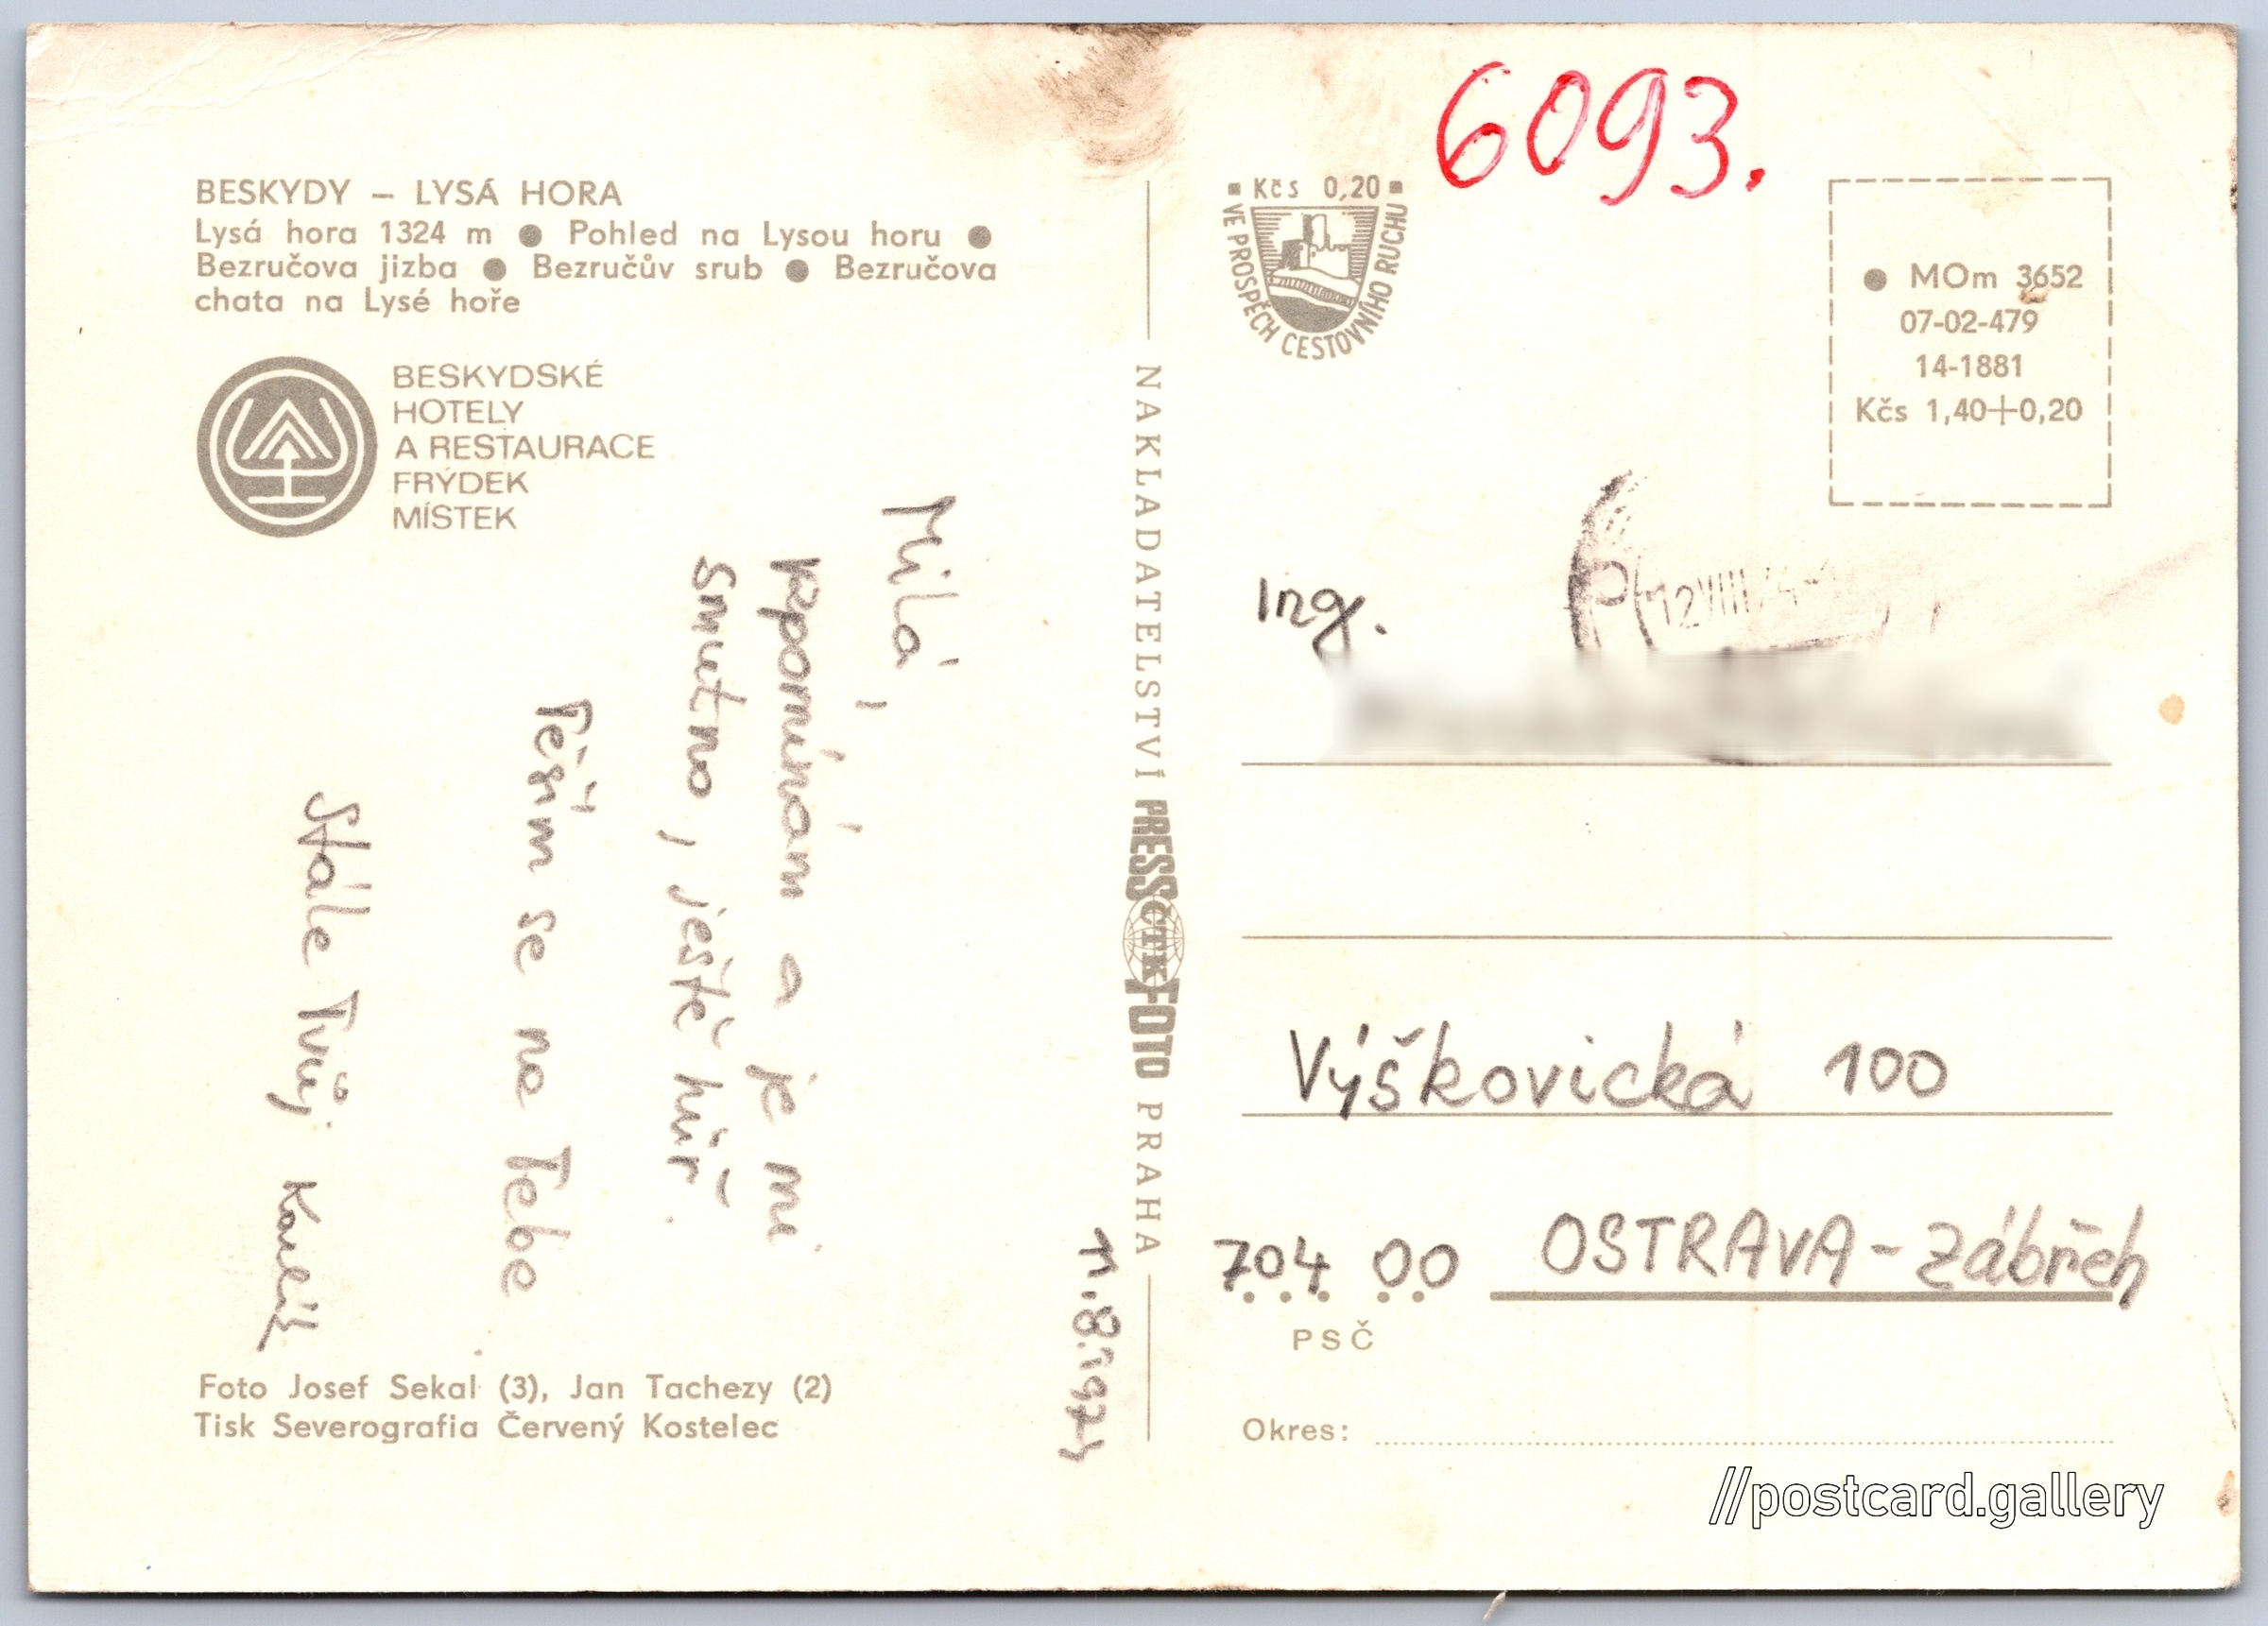 BESKYDY – LYSÁ HORA
Lysá hora 1324 m ● Pohled na Lysou horu ●
Bezručova jizba ● Bezručův srub ● Bezručova
chata na Lysé hoře
BESKYDSKÉ
HOTELY
A RESTAURACE
FRÝDEK
MÍSTEK
Milá,
vzpomínám a je mi
smutno, ještě hůř.
Těším se na Tebe
Stále Tvůj Karlík
11.8.1974
Foto Josef Sekal (3), Jan Tachezy (2)
Tisk Severografia Červený Kostelec
NAKLADATELSTVÍ PRESSFOTO PRAHA
ČTK
6093.
Kčs 0,20
VE PROSPĚCH CESTOVNÍHO RUCHU
● MOm 3652
07-02-479
14-1881
Kčs 1,40+0,20
12 VIII 74
Ing.
Výškovická 100
704 00 OSTRAVA-Zábřeh
PSČ
Okres:
//postcard.gallery